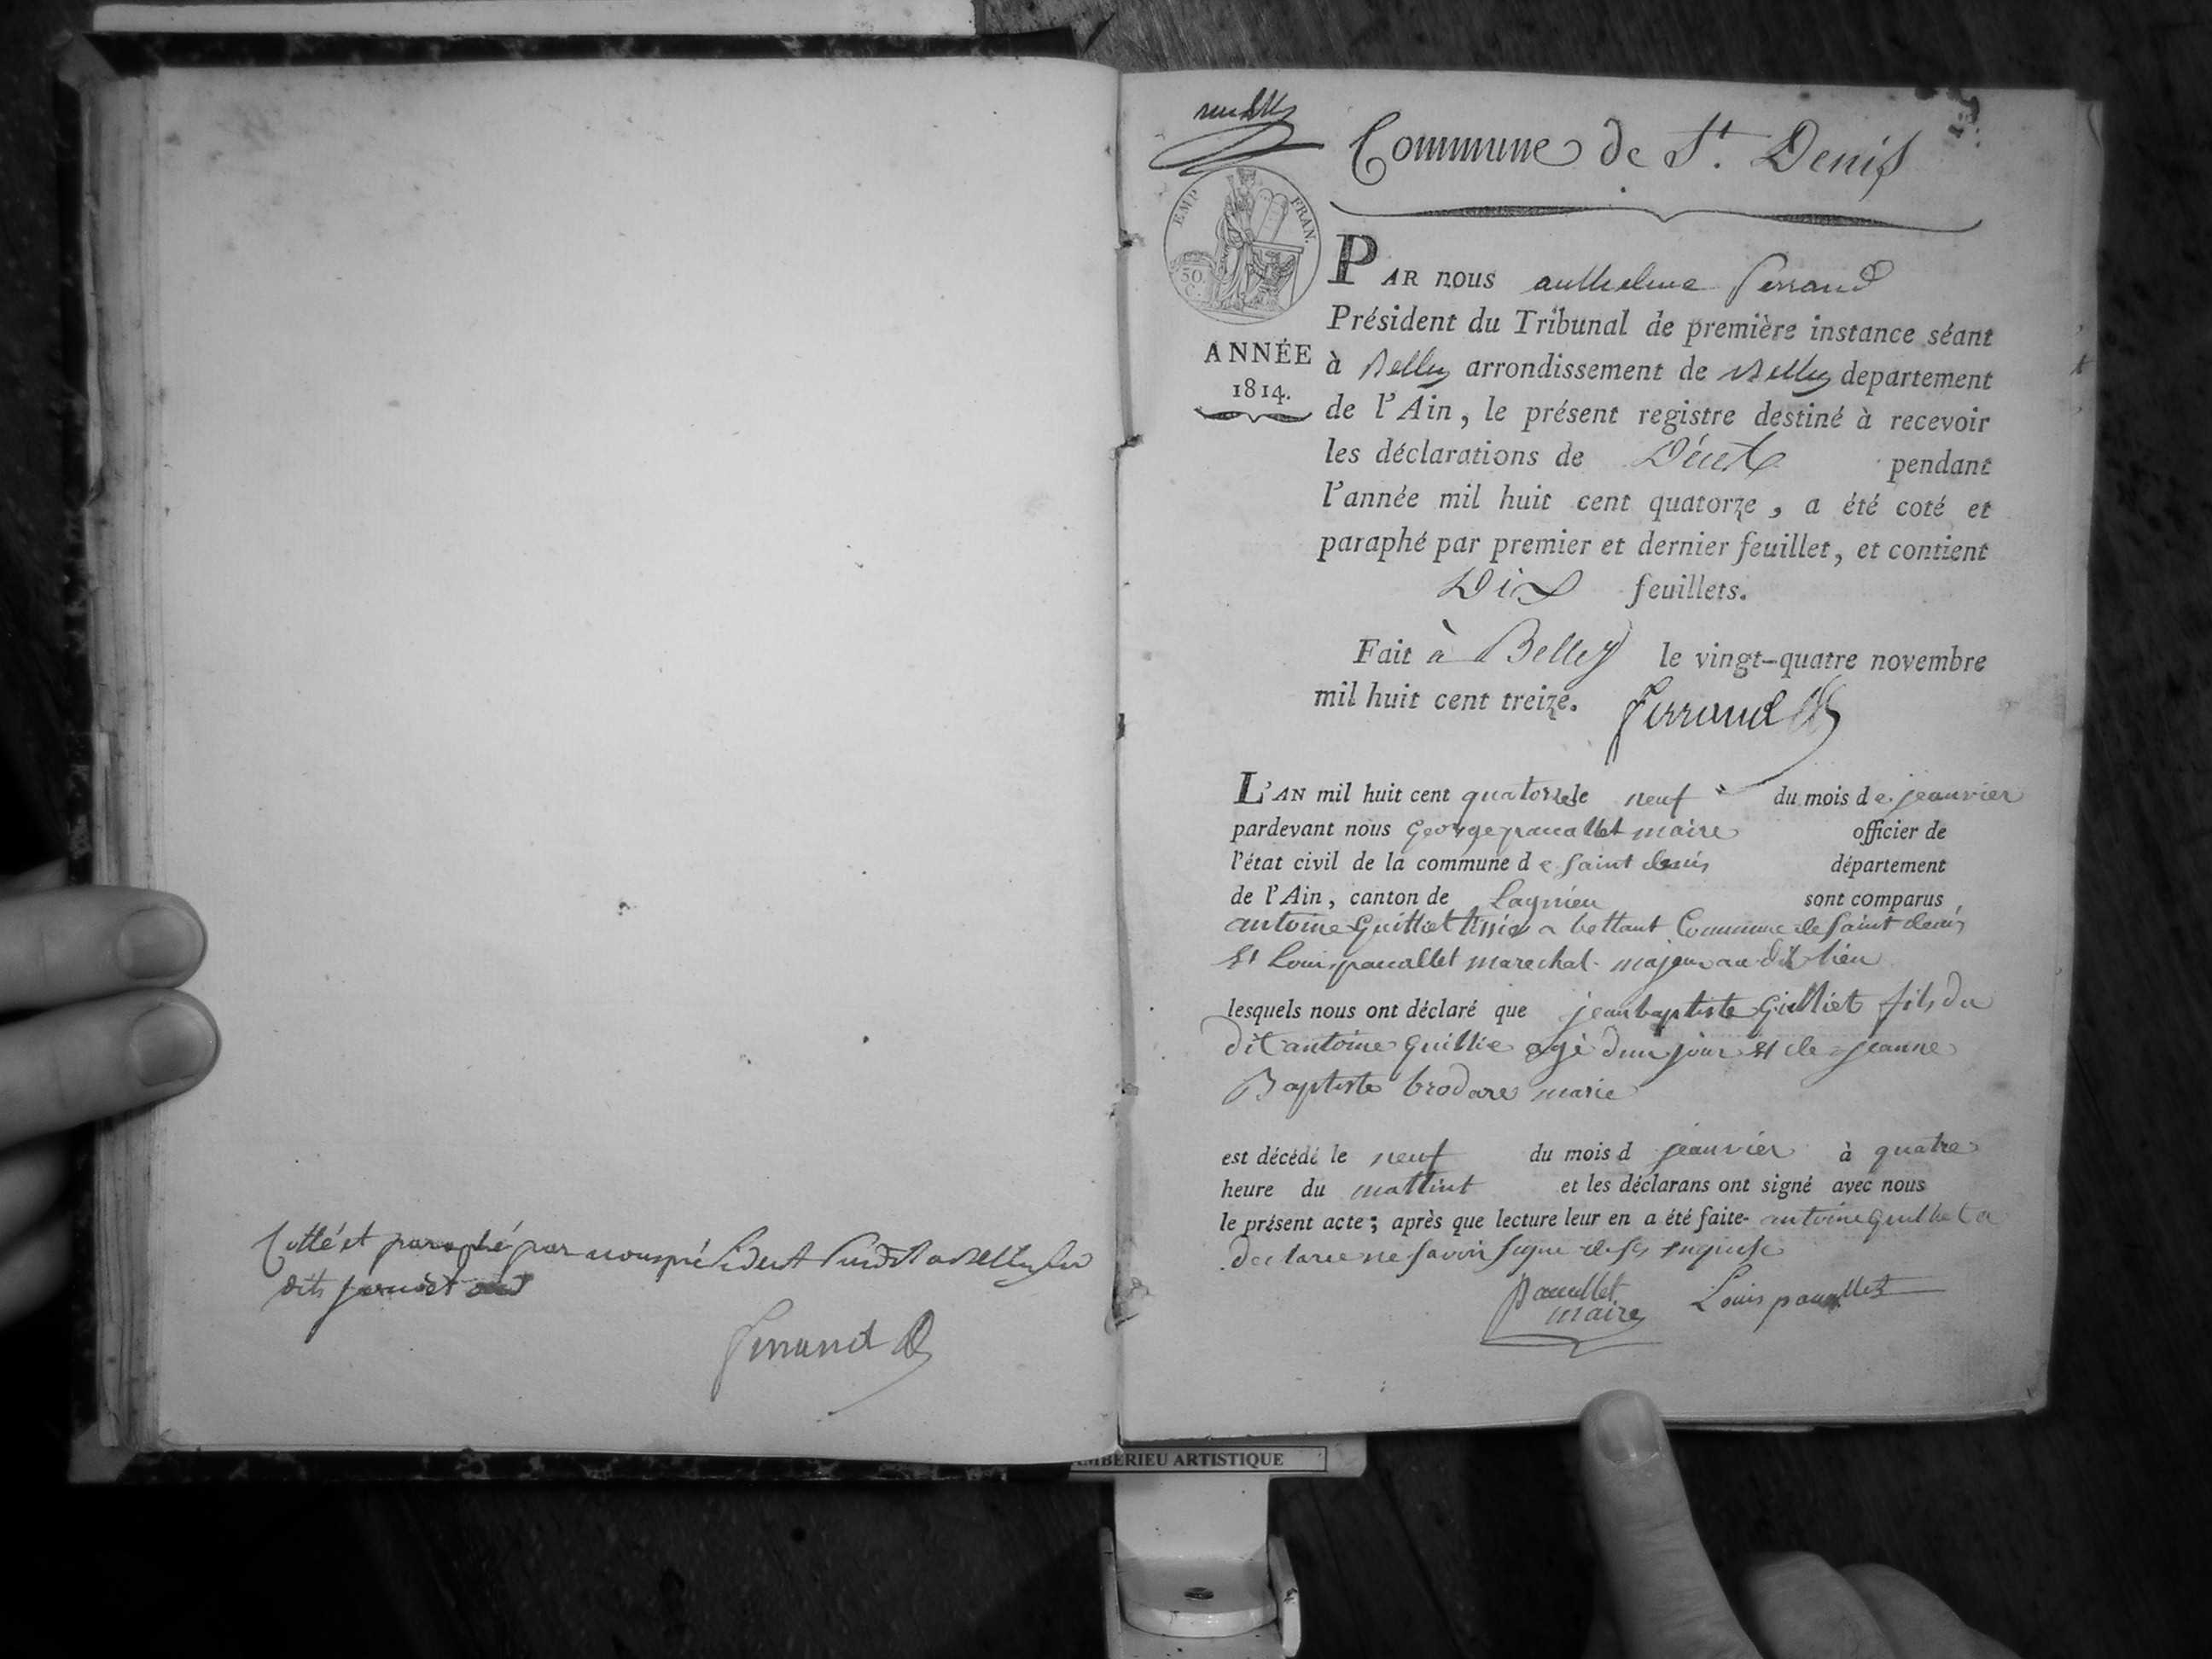 Cotté et paraphé par nous président
Ferrand
Commune de St. Denis
EMP. FRAN.
50 C.
ANNÉE
1814.
PAR nous anthelme ferrand
Président du Tribunal de première instance séant
à Belley arrondissement de Belley departement
de l'Ain, le présent registre destiné à recevoir
les déclarations de Décet pendant
l'année mil huit cent quatorze, a été coté et
paraphé par premier et dernier feuillet, et contient
Dix feuillets.
Fait à Belley le vingt-quatre novembre
mil huit cent treize. ferrand
L'AN mil huit cent quatorze le neuf du mois de jeanvier
pardevant nous George paucallet maire officier de
l'état civil de la commune de saint denis département
de l'Ain, canton de Lagnieu sont comparus,
antoine Guilliet tissié a bettant Commune de saint denis
et Louis paucallet marechal majeur au dit lieu
lesquels nous ont déclaré que jean baptiste Guilliet fils du
dit antoine Guillie agé dun jour et de jeanne
Baptiste brodare marie
est décédé le neuf du mois d jeanvier à quatre
heure du mattint et les déclarans ont signé avec nous
le présent acte; après que lecture leur en a été faite. antoine Guilliet a
declaré ne savoir signe de se enquis
Paucallet
maire Louis paucallet
AMBERIEU ARTISTIQUE